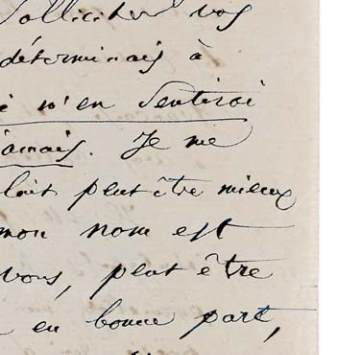 solliciter vos
déterminais à
n'en sentirai
jamais. Je me
peut être mieux
mon nom est
vous, peut être
en bonne part,